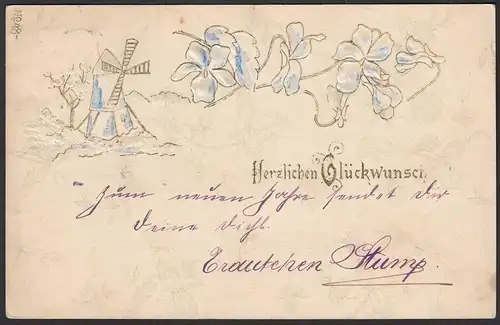 Herzlichen Glückwunsch
"Zum neuen Jahre sendet dir
deine dich
Trautchen Stump.